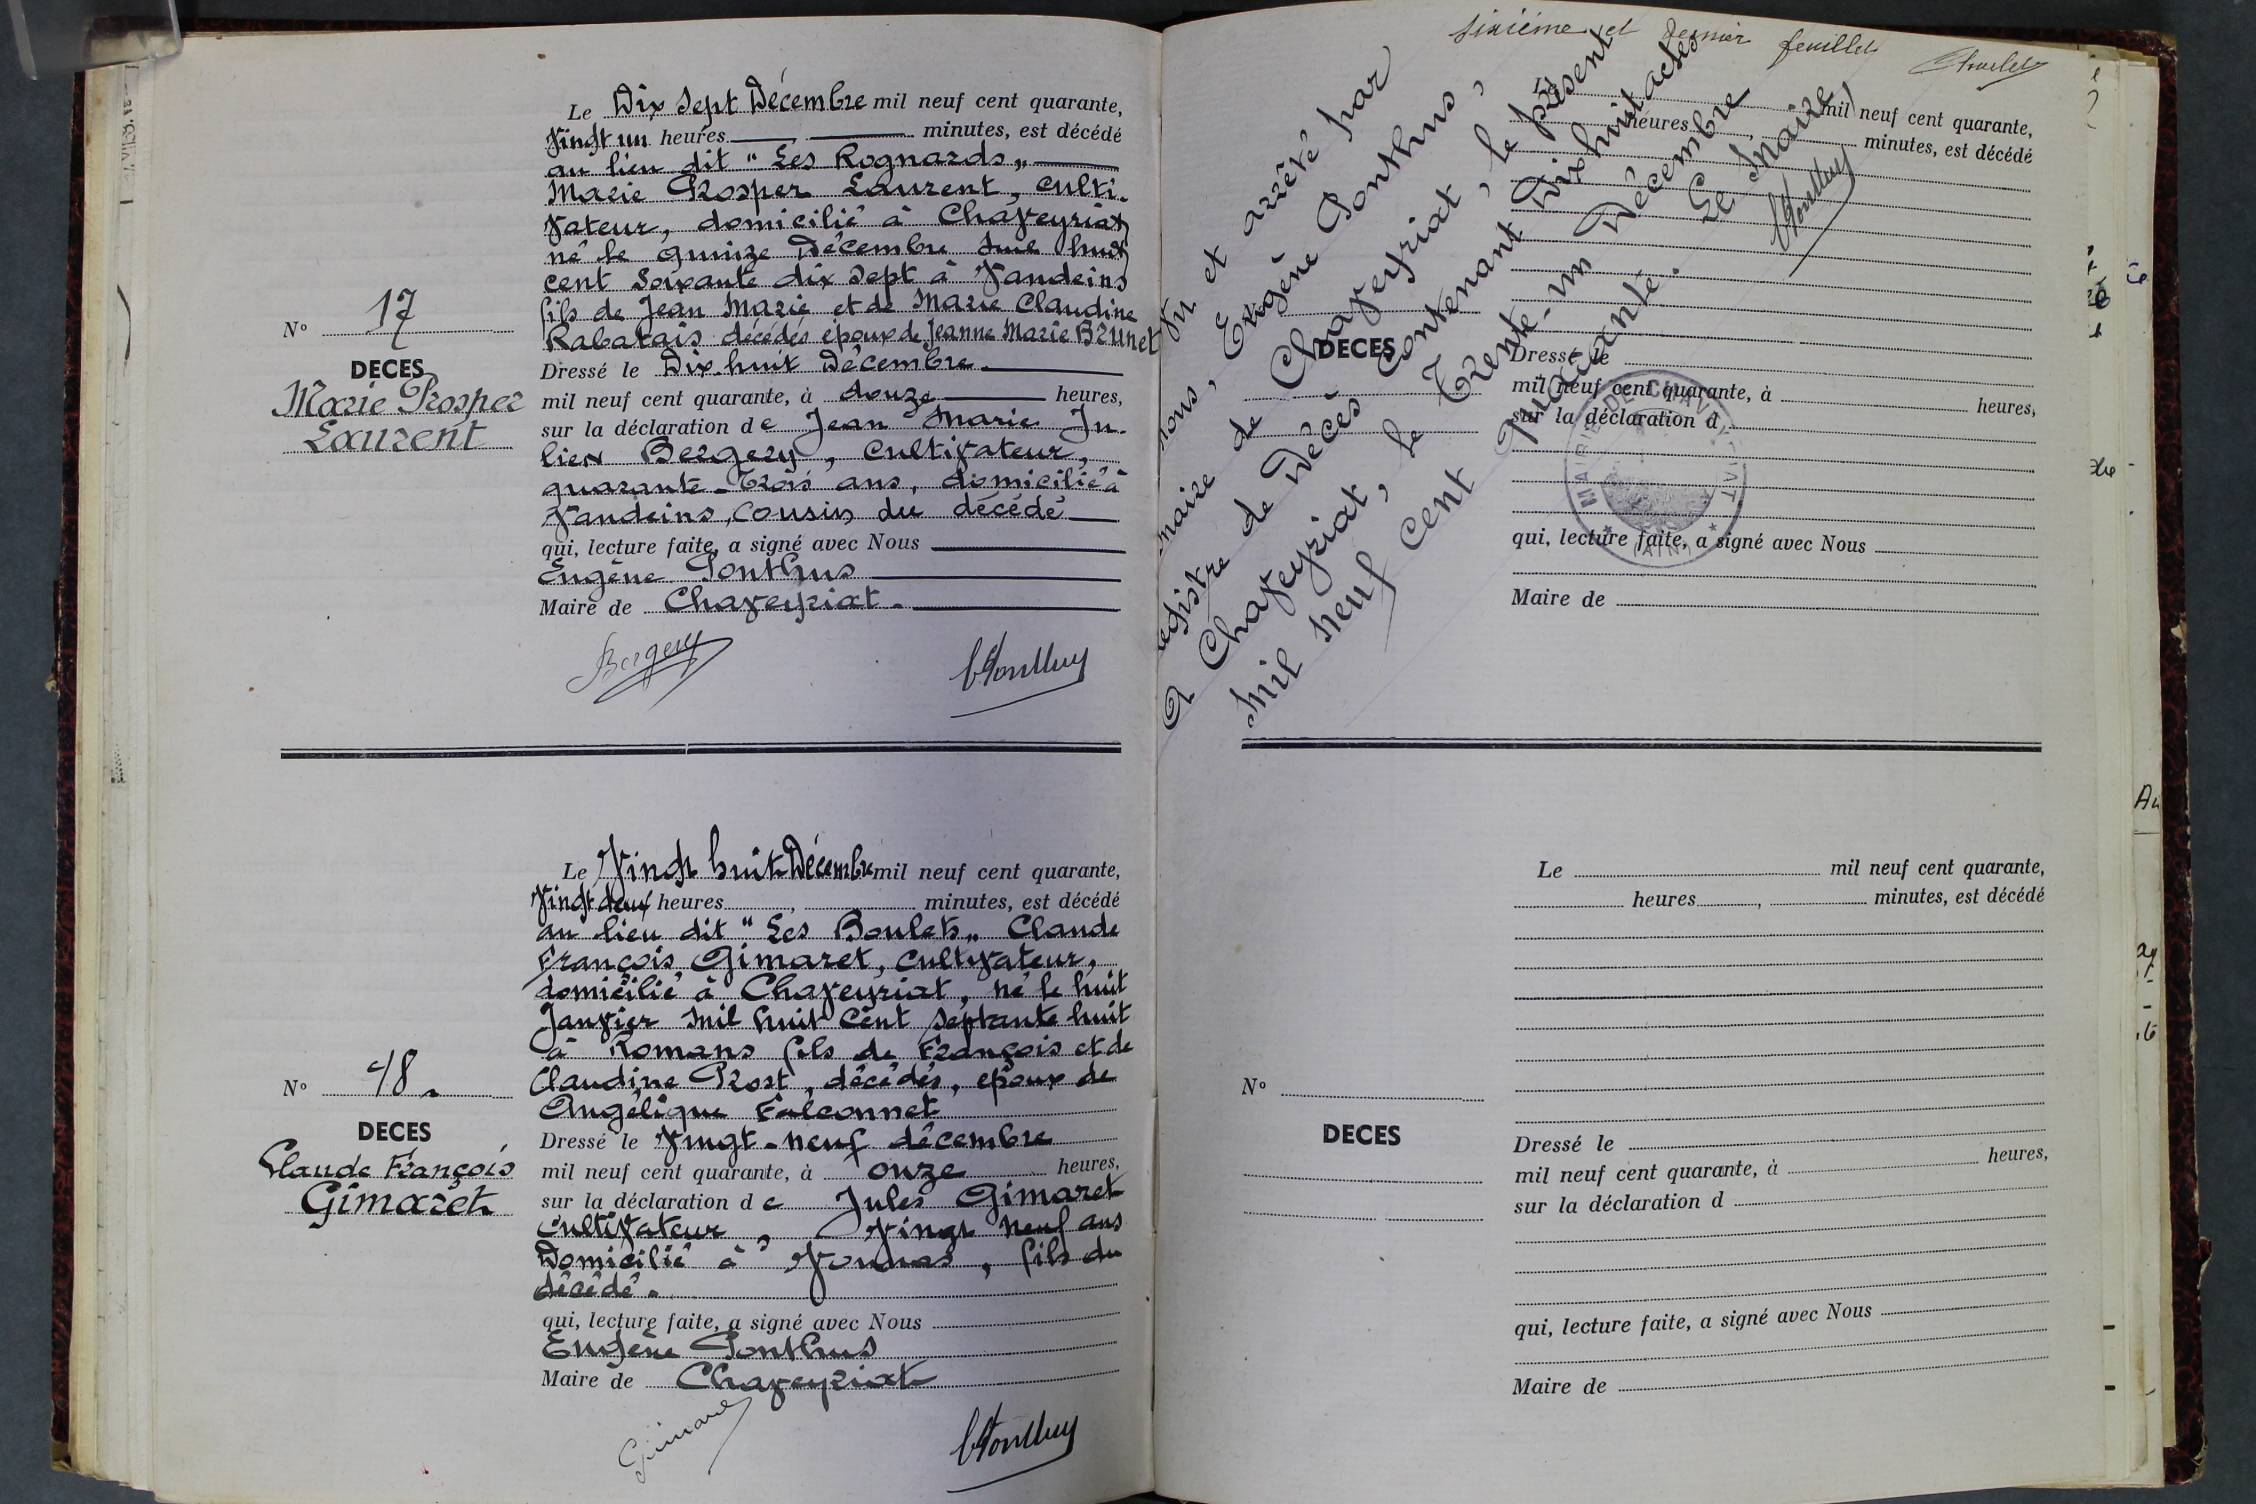 Le Dix sept Décembre mil neuf cent quarante,
Vingt un heures minutes, est décédé
au lieu dit "Les Rognards"
Marie Prosper Laurent, culti-
vateur, domicilié à Chaveyriat
né le quinze Décembre mil huit
cent soixante dix sept à Vandeins
fils de Jean Marie et de Marie Claudine
Rabatais décédés époux de Jeanne Marie Brunet
N° 17
DECES
Marie Prosper
Laurent
Dressé le Dix-huit Décembre.
mil neuf cent quarante, à douze heures,
sur la déclaration de Jean Marie Ju-
lien Bergery, cultivateur,
quarante-trois ans, domicilié à
Vandeins, cousin du décédé
qui, lecture faite, a signé avec Nous
Eugène Ponthus
Maire de Chaveyriat.
Bergery
EPonthus
Le Vingt huit Décembre mil neuf cent quarante,
Vingt deux heures , minutes, est décédé
au lieu dit "Les Boulets" Claude
François Gimaret, cultivateur,
domicilié à Chaveyriat, né le huit
Janvier mil huit cent septante huit
à Romans fils de François et de
Claudine Prost, décédés, époux de
Angélique Falconnet
N° 18.
DECES
Claude François
Gimaret
Dressé le Vingt-neuf décembre
mil neuf cent quarante, à onze heures,
sur la déclaration de Jules Gimaret
cultivateur, Vingt neuf ans
Domicilié à Vonnas, fils du
décédé.
qui, lecture faite, a signé avec Nous
Eugène Ponthus
Maire de Chaveyriat
Gimaret
EPonthus
sixième et dernier feuillet
Vu et arrêté par
nous, Eugène Ponthus,
maire de Chaveyriat, le présent
registre de Décès contenant Dix huit actes
A Chaveyriat, le Trente-un Décembre
mil neuf cent quarante. Le Maire,
EPonthus
mil neuf cent quarante,
heures minutes, est décédé
DECES
Dressé le
mil neuf cent quarante, à heures,
sur la déclaration d
MAIRIE DE CHAVEYRIAT
(AIN)
qui, lecture faite, a signé avec Nous
Maire de
Le mil neuf cent quarante,
heures , minutes, est décédé
N°
DECES
Dressé le
mil neuf cent quarante, à heures,
sur la déclaration d
qui, lecture faite, a signé avec Nous
Maire de